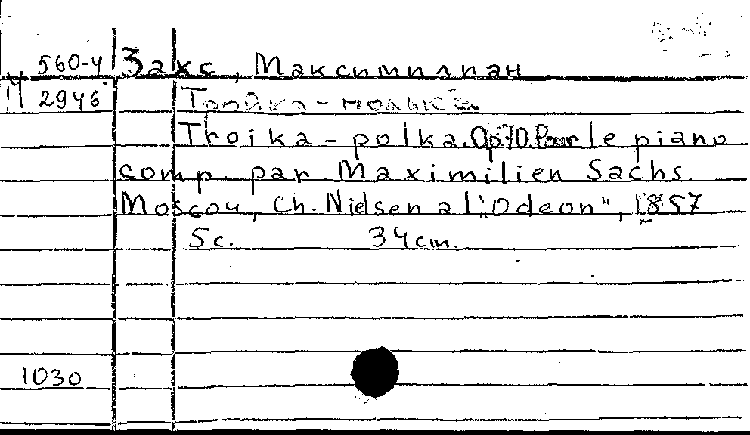 560-4 Закс, Максимилиан
М 2946 Тройка-полька
Troika-polka. Op70. Pour le piano
comp. par Maximilien Sachs.
Moscou, Ch. Nielsen a l'"Odeon", 1857
5с. 34cm.
1030